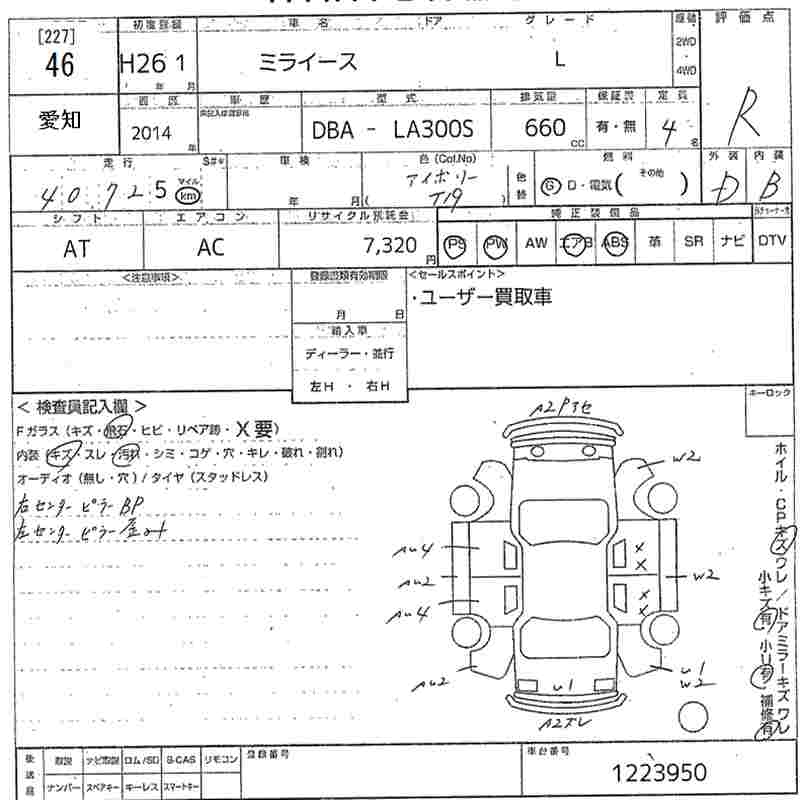 [227]
46
初度登録
車名
ドア
グレード
評価点
H26 1
年 月
ミライース
L
2WD
4WD
R
愛知
車歴
型式
排気量
保証書
定員
2014
年
DBA - LA300S
660
CC
有・無
4
名
走行
S#*
車検
色 (Col.No)
色替
燃料
外装
内装
40,725
マイル
km
年 月(
アイボリー
T19
)
G D・電気( その他 )
D
B
シフト
エアコン
リサイクル預託金
純正装備品
AT
AC
7,320
円
PS
PW
AW
エアB
ABS
革
SR
ナビ
DTV
<注意事項>
登録書類有効期限
<セールスポイント>
月 日
・ユーザー買取車
輸入車
ディーラー・並行
左H ・ 右H
< 検査員記入欄 >
キーロック
Fガラス (キズ・飛石・ヒビ・リペア跡・X要)
内装 (キズ・スレ・汚れ・シミ・コゲ・穴・キレ・破れ・割れ)
オーディオ (無し・穴) / タイヤ (スタッドレス)
右センターピラーBP
左センターピラー
A2
W2
W2
U1
W2
U1
A2スレ
ホイル・CPキズワレ/ドアミラーキズワレ
小キズ有 小U有 補修有
後送品
取説
ナビ取説
ロム/SD
B-CAS
リモコン
登録番号
車台番号
ナンバー
スペアキー
キーレス
スマートキー
1223950